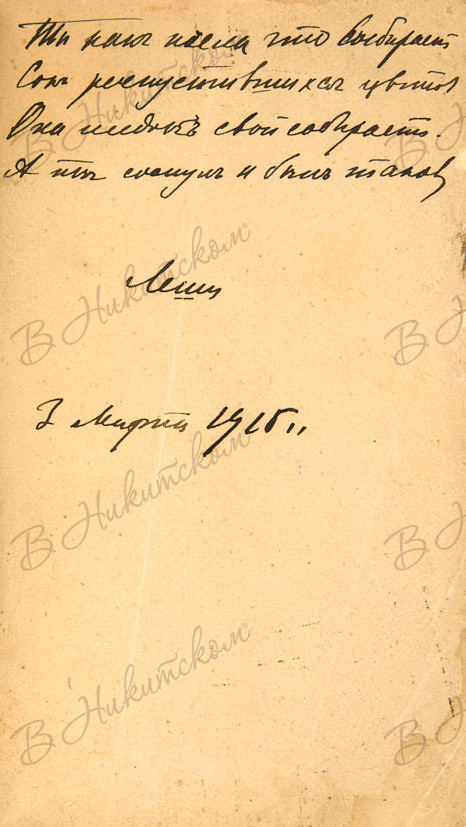 Ты какъ пчела что выбираетъ
Сокъ распустившихся цвѣтов
Она медокъ свой собираетъ.
А ты сосулъ и былъ таков
Леши
3 Марта 1915 г.
В Никитском
В Никитском
В Никитском
В Никитском